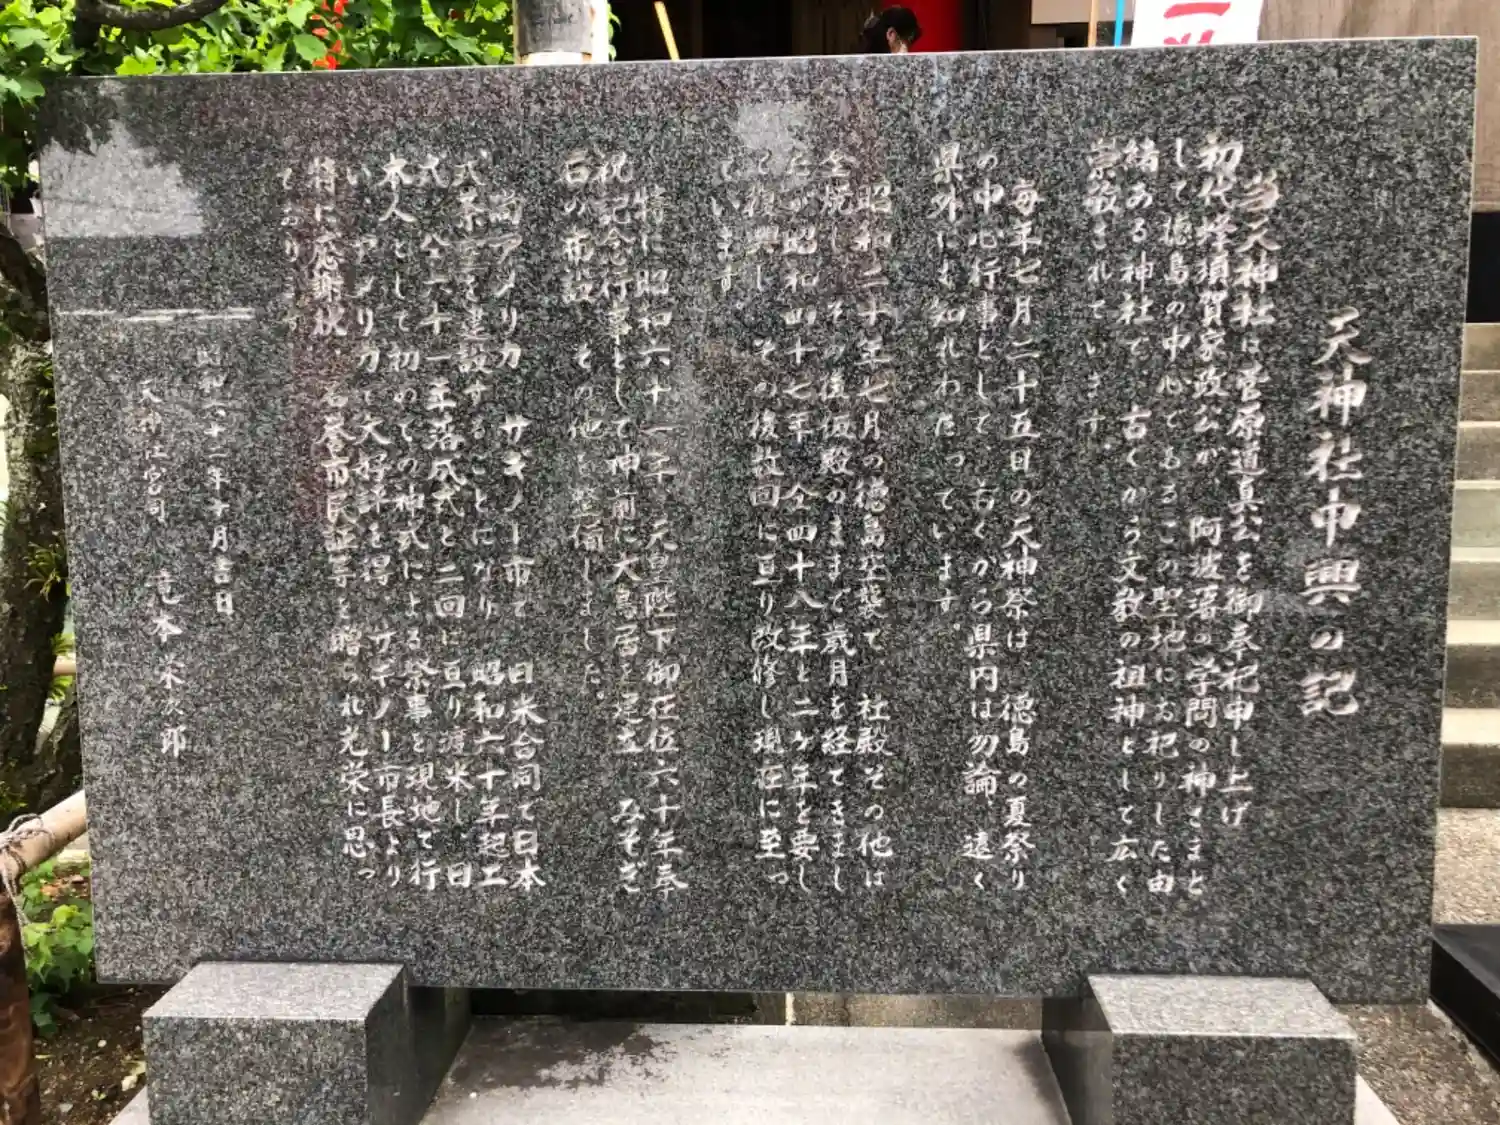 天神社中興の記
当天神社は菅原道真公を御奉祀申し上げ
初代蜂須賀家政公が、阿波藩の学問の神さまと
して徳島の中心であるこの聖地にお祀りした由
緒ある神社で、古くから文教の祖神として広く
崇敬されています。
毎年七月二十五日の天神祭は、徳島の夏祭り
の中心行事として、古くから県内は勿論、遠く
県外にも知れわたっています。
昭和二十年七月の徳島空襲で、社殿その他は
全焼し、その後仮殿のままで歳月を経てきまし
たが昭和四十七年、仝四十八年と二ケ年を要し
て復興し、その後数回に亘り改修し現在に至っ
ています。
特に昭和六十一年、天皇陛下御在位六十年奉
祝記念行事として神前に大鳥居を建立、みそぎ
石の布設、その他を整備しました。
尚アメリカ、サギノー市で、日米合同で日本
式茶室を建設することになり、昭和六十年起工
式、仝六十一年落成式と二回に亘り渡米し、日
本人として初めての神式による祭事を現地で行
い、アメリカで大好評を得、サギノー市長より
特に感謝状、名誉市民証等を贈られ光栄に思っ
ております。
昭和六十一年十月吉日
天神社宮司
本栄次郎